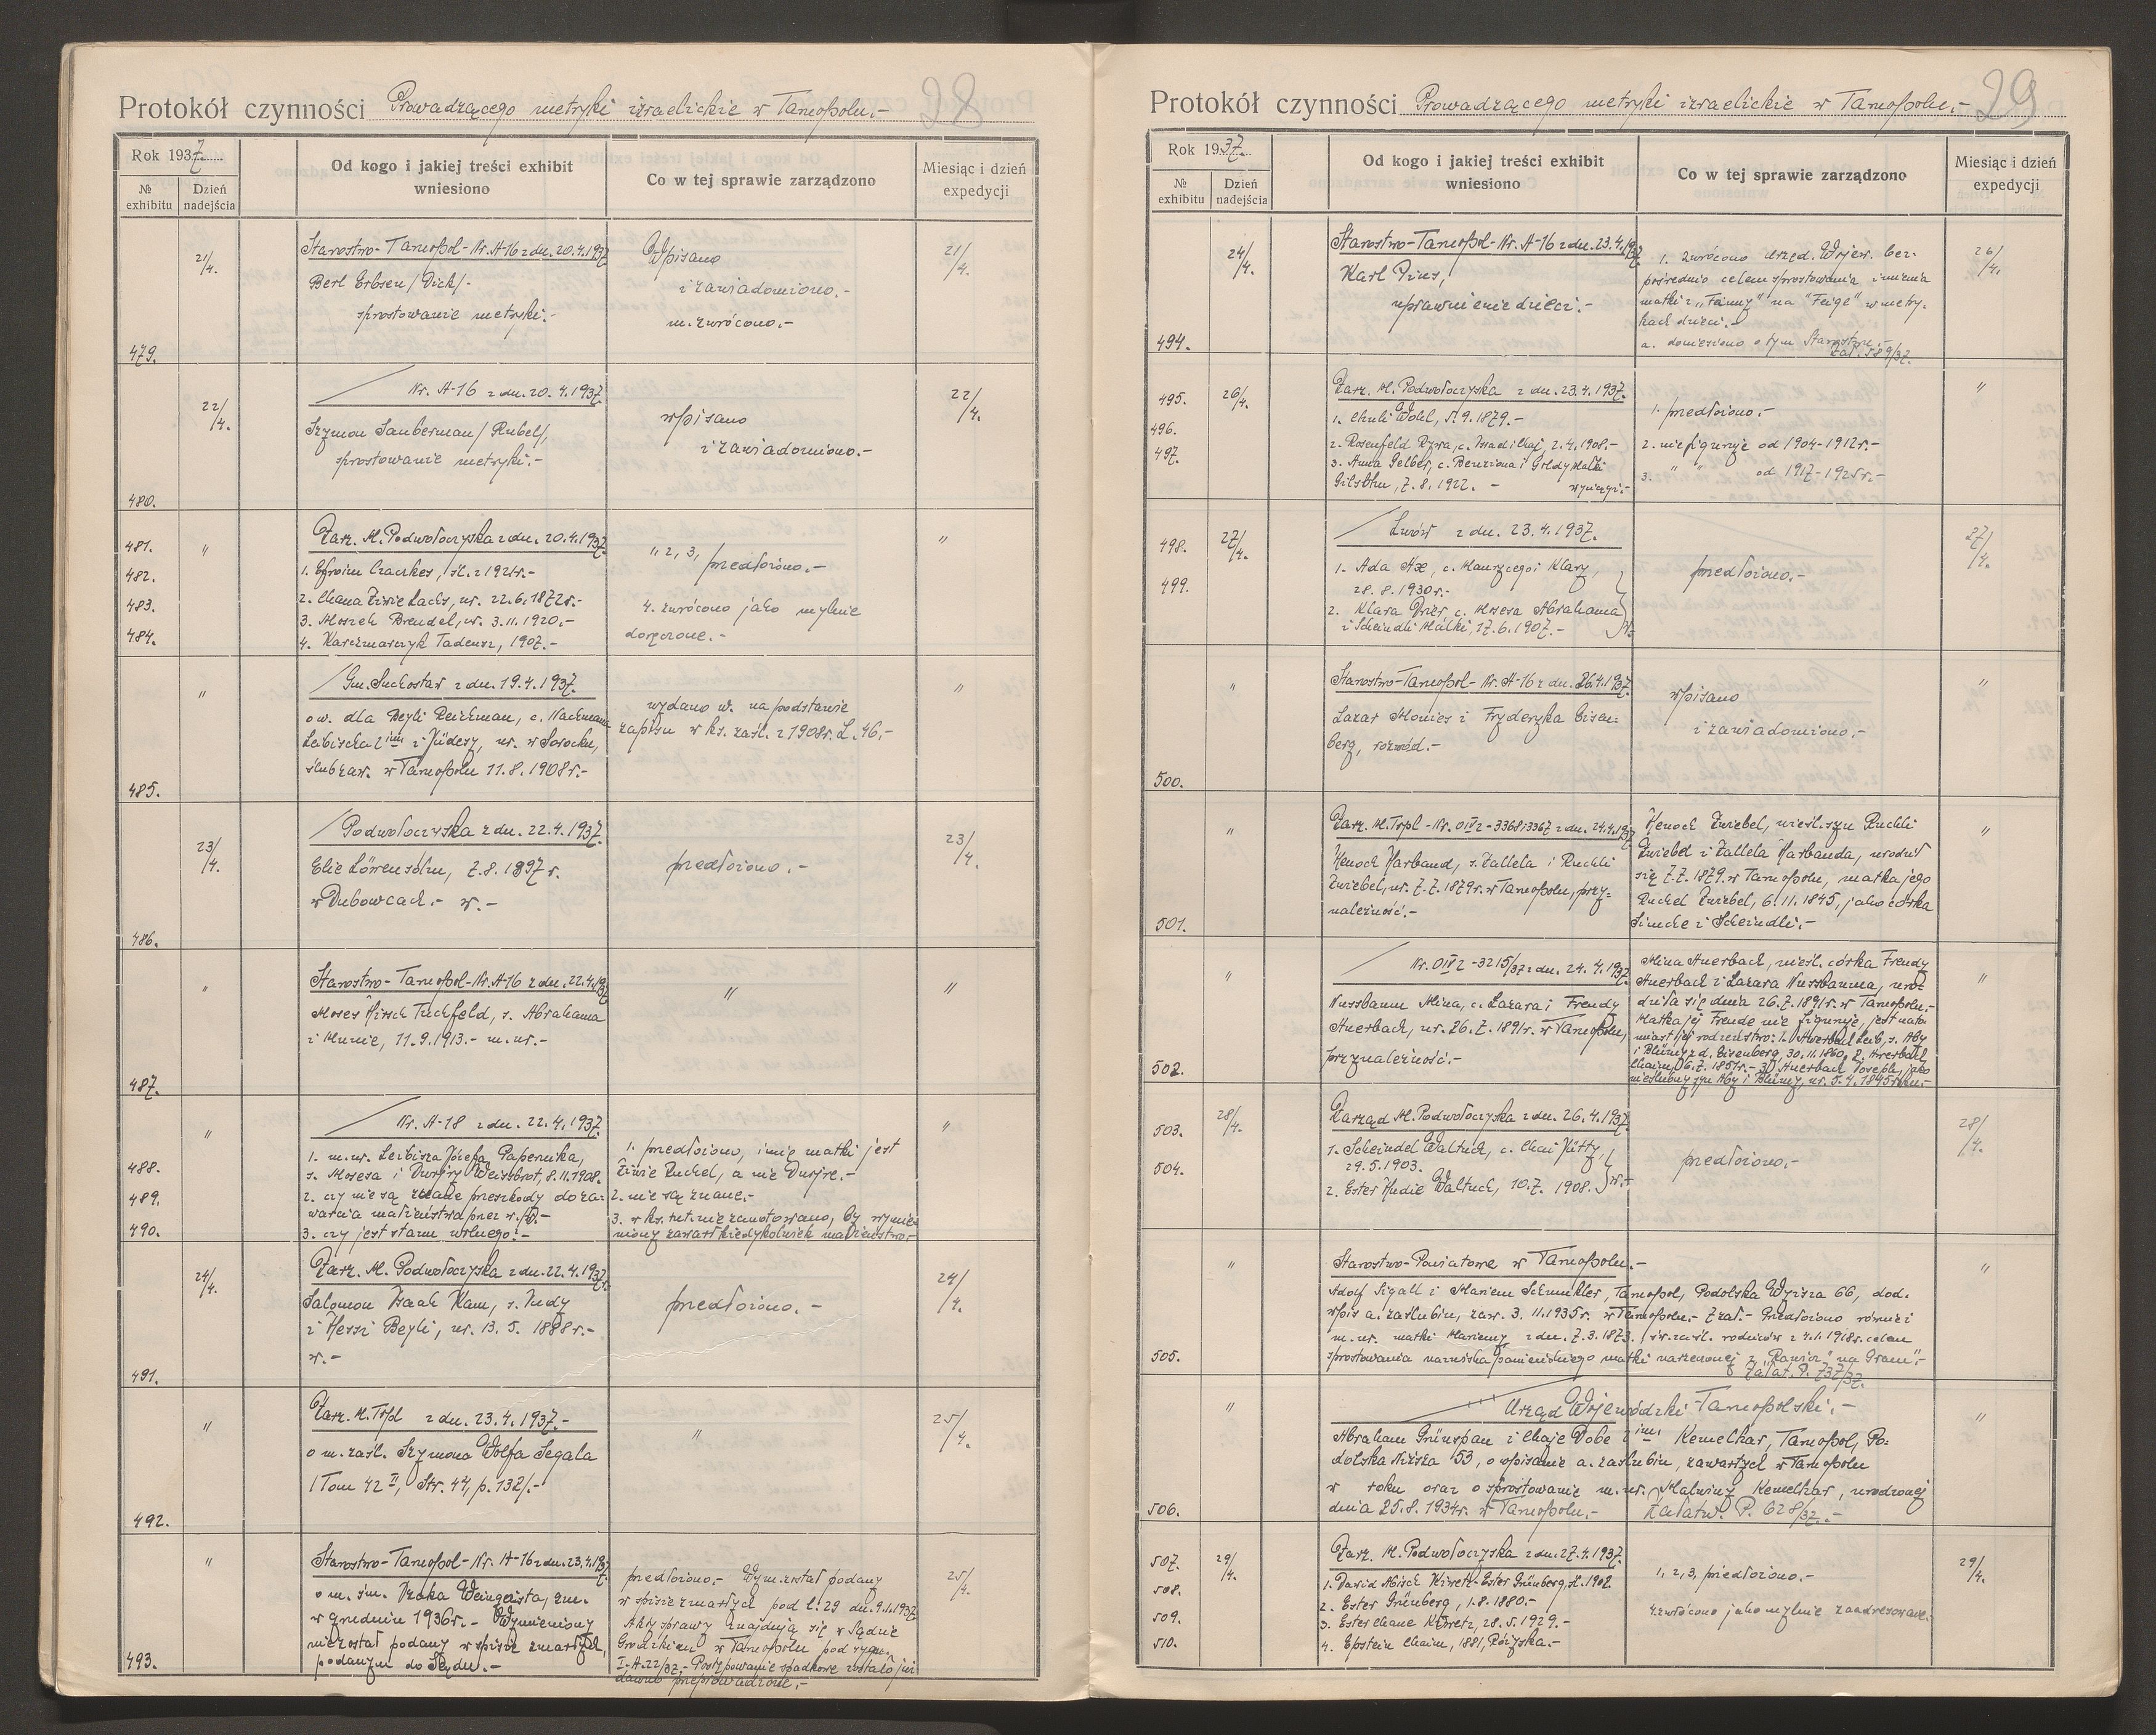 Protokół czynności Prowadzącego metryki izraelickie w Tarnopolu.-
28
Rok 1937.
№ exhibitu
Dzień nadejścia
Od kogo i jakiej treści exhibit wniesiono
Co w tej sprawie zarządzono
Miesiąc i dzień expedycji
21/4.
Starostwo-Tarnopol-Nr. A-16 z dn. 20.4.1937
Berl Erbsen/Dick/-
sprostowanie metryki.-
Wpisano
i zawiadomiono.-
m. zwrócono.-
21/4.
479.
22/4.
Nr. A-16 z dn. 20.4.1937.
Szymon Sauberman/Rubel/,
sprostowanie metryki.-
wpisano
i zawiadomiono.-
22/4.
480.
481.
482.
483.
484.
"
Zarz. M. Podwołoczyska z dn. 20.4.1937.
1. Efroim Czaczkes, śl. z 1921r.-
2. Chana Ziwie Lachs, ur. 22.6.1872r.-
3. Moszek Brendel, ur. 3.11.1920.-
4. Karczmarczyk Tadeusz, 1907.-
1, 2, 3, przedłożono.-
4. zwrócono jako mylnie
doręczone.-
"
"
Gm. Suchostaw z dn. 19.4.1937.
o w. dla Beyli Reichman, c. Nachmana
Leibischa 2im i Jüdesy, ur. w Sorocku,
ślub zaw. w Tarnopolu 11.8.1908r.-
wydano w. na podstawie
zapisu w ks. zaśl. z 1908r. L. 46.-
"
485.
23/4.
Podwołoczyska z dn. 22.4.1937.
Elie Löwensohn, 7.8.1897r.
w Dubowcach.- w.-
przedłożono.-
23/4.
486.
"
Starostwo-Tarnopol-Nr. A-16 z dn. 22.4.1937
Moses Hirsch Tuchfeld, s. Abrahama
i Munie, 11.9.1913.- m. ur.-
"
"
487.
"
Nr. A-18 z dn. 22.4.1937.
488.
489.
490.
1. m. ur. Leibisza Józefa Papernika,
s. Mosesa i Dwojry Weissbrot, 8.11.1908.
2. czy nie są znane przeszkody do za-
warcia małżeństwa przez w./D.-
3. czy jest stanu wolnego?-
1. przedłożono, imię matki jest
Ziwie Ruchel, a nie Dwojre.-
2. nie są znane.-
3. w ks. tut. nie zanotowano, by wymie-
niony zawarł kiedykolwiek małżeństwo.-
"
24/4.
Zarz. M. Podwołoczyska z dn. 22.4.1937.
Salomon Isaak Kam, s. Judy
i Hessi Beyli, ur. 13.5.1888r.-
w.-
przedłożono.-
24/4.
491.
"
Zarz. M. Tspl z dn. 23.4.1937.-
o m. zaśl. Szymona Wolfa Segala
/Tom 42 II, Str. 44, p. 132/.-
"
25/4.
492.
"
Starostwo-Tarnopol-Nr. A-16 z dn. 23.4.1937.
o m. śm. Izaka Weingasta, zm.
w grudniu 1936r.- Wymieniony
nie został podany w spisie zmarłych,
podanym do Sądu.-
przedłożono.- Wym. został podany
w spisie zmarłych pod l. 29 dn. 9.1.1937
Akty sprawy znajdują się w Sądzie
Grodzkim w Tarnopolu pod sygn.
I. A. 22/37.- Postępowanie spadkowe zostało już
dawno przeprowadzone.-
25/4.
493.
Protokół czynności Prowadzącego metryki izraelickie w Tarnopolu.-
29
Rok 1937.
№ exhibitu
Dzień nadejścia
Od kogo i jakiej treści exhibit wniesiono
Co w tej sprawie zarządzono
Miesiąc i dzień expedycji
24/4.
Starostwo-Tarnopol-Nr. A-16 z dn. 23.4.1937.
Karl Pins,
uprawnienie dzieci.-
1. zwrócono Urzęd. Wojew. bez-
pośrednio celem sprostowania imienia
matki z "Fanny" na "Feige" w metry-
kach dzieci.-
a. doniesiono o tym Starostwu.-
Zał. 589/37.
26/4.
494.
495.
496.
497.
26/4.
Zarz. M. Podwołoczyska z dn. 23.4.1937.
1. Chuli Wohl, 5.9.1879.-
2. Rosenfeld Rywa, c. Izraela i Chaj, 2.4.1908.-
3. Anna Gelber, c. Benziona i Goldy Malki
7.8.1922.- wyciągi.-
1. przedłożono.-
2. nie figuruje od 1904-1912r.-
3. " " od 1917-1925r.-
"
498.
499.
27/4.
Lwów z dn. 23.4.1937.
1. Ada Axe, c. Maurycego i Klary,
28.8.1930r.-
2. Klara c. Mosesa Abrahama
i Scheindli Malki, 17.6.1907.-
w.
przedłożono.-
27/4.
"
Starostwo-Tarnopol-Nr. A-16 z dn. 26.4.1937.
Lazar Monies i Fryderyka Eisen-
berg, rozwód.-
wpisano
i zawiadomiono.-
"
500.
"
Zarz. M. Tspl-Nr. OIV2-3368/3367 z dn. 24.4.1937
Henoch Harband, s. Zallela i Ruchli
Zwiebel, ur. 7.7.1879r. w Tarnopolu, przy-
należność.-
Henoch Zwiebel, nieśl. syn Ruchli
Zwiebel i Zallela Harbanda, urodził
się 7.7.1879. w Tarnopolu, matka jego
Ruchel Zwiebel, 6.11.1845, jako córka
Simche i Scheindli.-
"
501.
"
Nr. OIV2-3215/37 z dn. 24.4.1937.
Nussbaum Mina, c. Lazara i Freudy
Auerbach, ur. 26.7.1891r. w Tarnopolu,
przynależność.-
Mina Auerbach, nieśl. córka Freudy
Auerbach i Lazara Nussbauma, uro-
dziła się dnia 26.7.1891r. w Tarnopolu.-
Matka jej Freude nie figuruje, jest nato-
miast jej rodzeństwo: 1. Auerbach Leib, s. Aby
i Blümy z d. Eisenberg, 30.11.1860, 2. Auerbach
Chaim, 06.7.1851r.- 3) Auerbach Joseph, jako
nieślubny syn Aby i Blümy, ur. 5.4.1845 roku.-
"
502.
503.
504.
28/4.
Zarząd M. Podwołoczyska z dn. 26.4.1937.
1. Scheindel Waltuch, c. Chai Jütty,
29.5.1903.
2. Ester Hudie Waltuch, 10.7.1908. w.-
przedłożono.-
28/4.
"
Starostwo-Powiatowe w Tarnopolu.-
Adolf Sigall i Mariem Schmukler, Tarnopol, Podolska Wyższa 66, dod.
wpis a. zaślubin, zaw. 3.11.1935r. w Tarnopolu.- 7 zał.- Przedłożono również
m. ur. matki Mariemy z dn. 7.3.1873. i w. zaśl. rodziców z 4.1.1918r. celem
sprostowania nazwiska panieńskiego matki narzeconej z "Rawicz" na "Gram".-
Załat. P. 737/37.
"
505.
"
Urząd Wojewódzki Tarnopolski.-
Abraham Grünspan i Chaje Dobe 2im. Kemelhar, Tarnopol, Po-
dolska Niższa 53, o wpisanie a. zaślubin, zawartych w Tarnopolu
w roku oraz o sprostowanie m. ur. Malwiny Kemelhar, urodzonej
dnia 25.8.1934r. w Tarnopolu.- Załatw. P. 628/37.-
"
506.
507.
508.
509.
510.
29/4.
Zarz. M. Podwołoczyska z dn. 27.4.1937.
1. Dawid Abisch Kiwetz-Ester Grünberg, śl. 1902.
2. Ester Grünberg, 1.8.1880.-
3. Ester Chane Kiwetz, 28.5.1929.-
4. Epstein Chaim, 1881, Różyska.-
1, 2, 3, przedłożono.-
4. zwrócono jako mylnie zaadresowane.-
29/4.